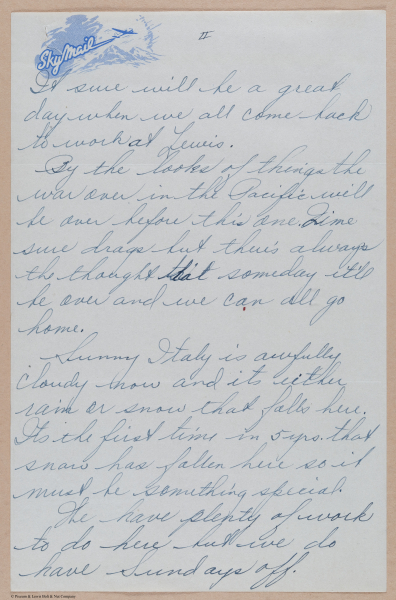 SkyMail
II
It sure will be a great
day when we all come back
to work at Lewis.
By the looks of things the
war over in the Pacific will
be over before this one. Time
sure drags but there's always
the thought that someday it'll
be over and we can all go
home.
Sunny Italy is awfully
cloudy now and its either
rain or snow that falls here.
Its the first time in 5 yrs. that
snow has fallen here so it
must be something special.
We have plenty of work
to do here but we do
have Sundays off.